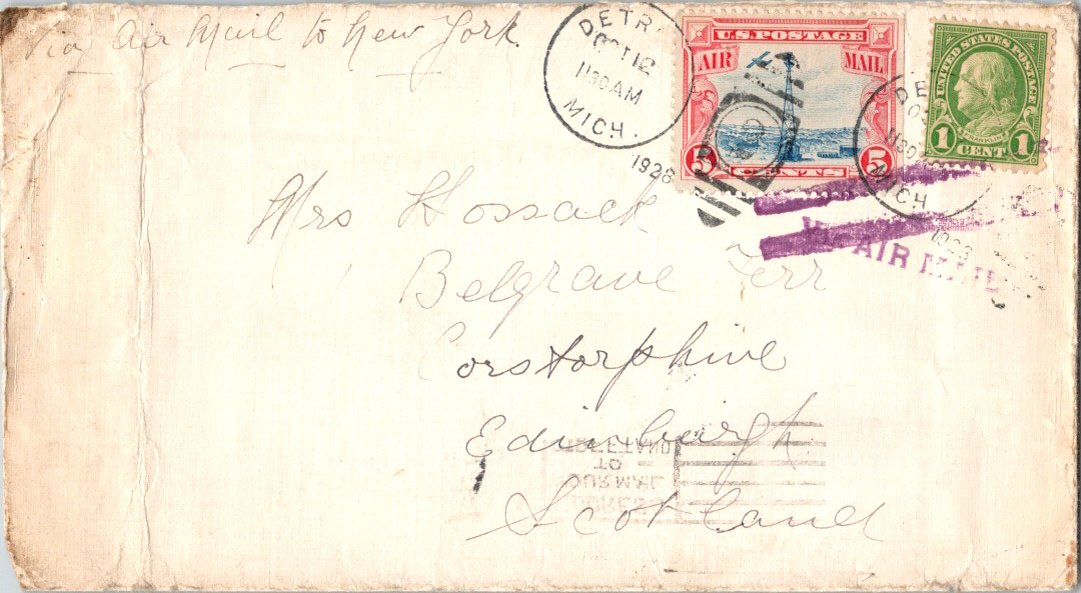 Via Air Mail to New York.
DETR
OCT 12
11 30 AM
MICH.
1928
U.S. POSTAGE
AIR MAIL
5 CENTS 5
UNITED STATES POSTAGE
FRANKLIN
1 CENT 1
DE
11 30
MICH
VIA AIR MAIL
Mrs Hossack
Belgrave Terr
Corstorphine
Edinburgh
Scotland